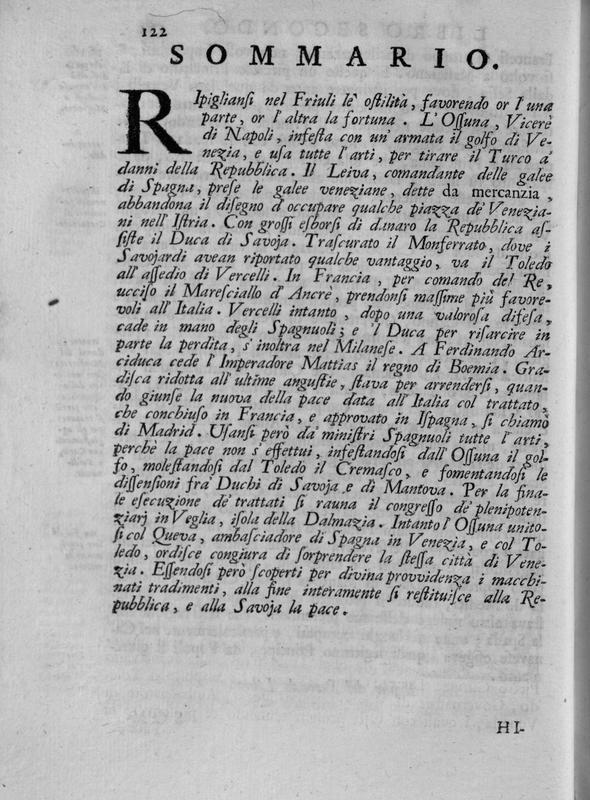 122
SOMMARIO.
RIpiglianſi nel Friuli le oſtilità, favorendo or l'una
parte, or l'altra la fortuna. L'Oſſuna, Vicerè
di Napoli, infeſta con un'armata il golfo di Ve-
nezia, e uſa tutte l'arti, per tirare il Turco a'
danni della Repubblica. Il Leiva, comandante delle galee
di Spagna, preſe le galee veneziane, dette da mercanzia,
abbandona il diſegno d'occupare qualche piazza de' Venezia-
ni nell'Iſtria. Con groſſi esborſi di danaro la Repubblica aſ-
ſiſte il Duca di Savoja. Traſcurato il Monferrato, dove i
Savojardi avean riportato qualche vantaggio, va il Toledo
all'aſſedio di Vercelli. In Francia, per comando del Re,
ucciſo il Mareſciallo d'Ancrè, prendonſi maſſime più favore-
voli all'Italia. Vercelli intanto, dopo una valoroſa difeſa,
cade in mano degli Spagnuoli; e 'l Duca per riſarcire in
parte la perdita, s'inoltra nel Milaneſe. A Ferdinando Ar-
ciduca cede l'Imperadore Mattias il regno di Boemia. Gra-
diſca ridotta all'ultime anguſtie, ſtava per arrenderſi, quan-
do giunſe la nuova della pace data all'Italia col trattato,
che conchiuſo in Francia, e approvato in Iſpagna, ſi chiamò
di Madrid. Uſanſi però da' miniſtri Spagnuoli tutte l'arti,
perchè la pace non s'effettui, infeſtandoſi dall'Oſſuna il gol-
fo, moleſtandoſi dal Toledo il Cremaſco, e fomentandoſi le
diſſenſioni fra' Duchi di Savoja e di Mantova. Per la fina-
le eſecuzione de' trattati ſi rauna il congreſſo de' plenipoten-
ziarj in Veglia, iſola della Dalmazia. Intanto l'Oſſuna unito-
ſi col Queva, ambaſciadore di Spagna in Venezia, e col To-
ledo, ordiſce congiura di ſorprendere la ſteſſa città di Vene-
zia. Eſſendoſi però ſcoperti per divina provvidenza i macchi-
nati tradimenti, alla fine interamente ſi reſtituiſce alla Re-
pubblica, e alla Savoja la pace.
HI-